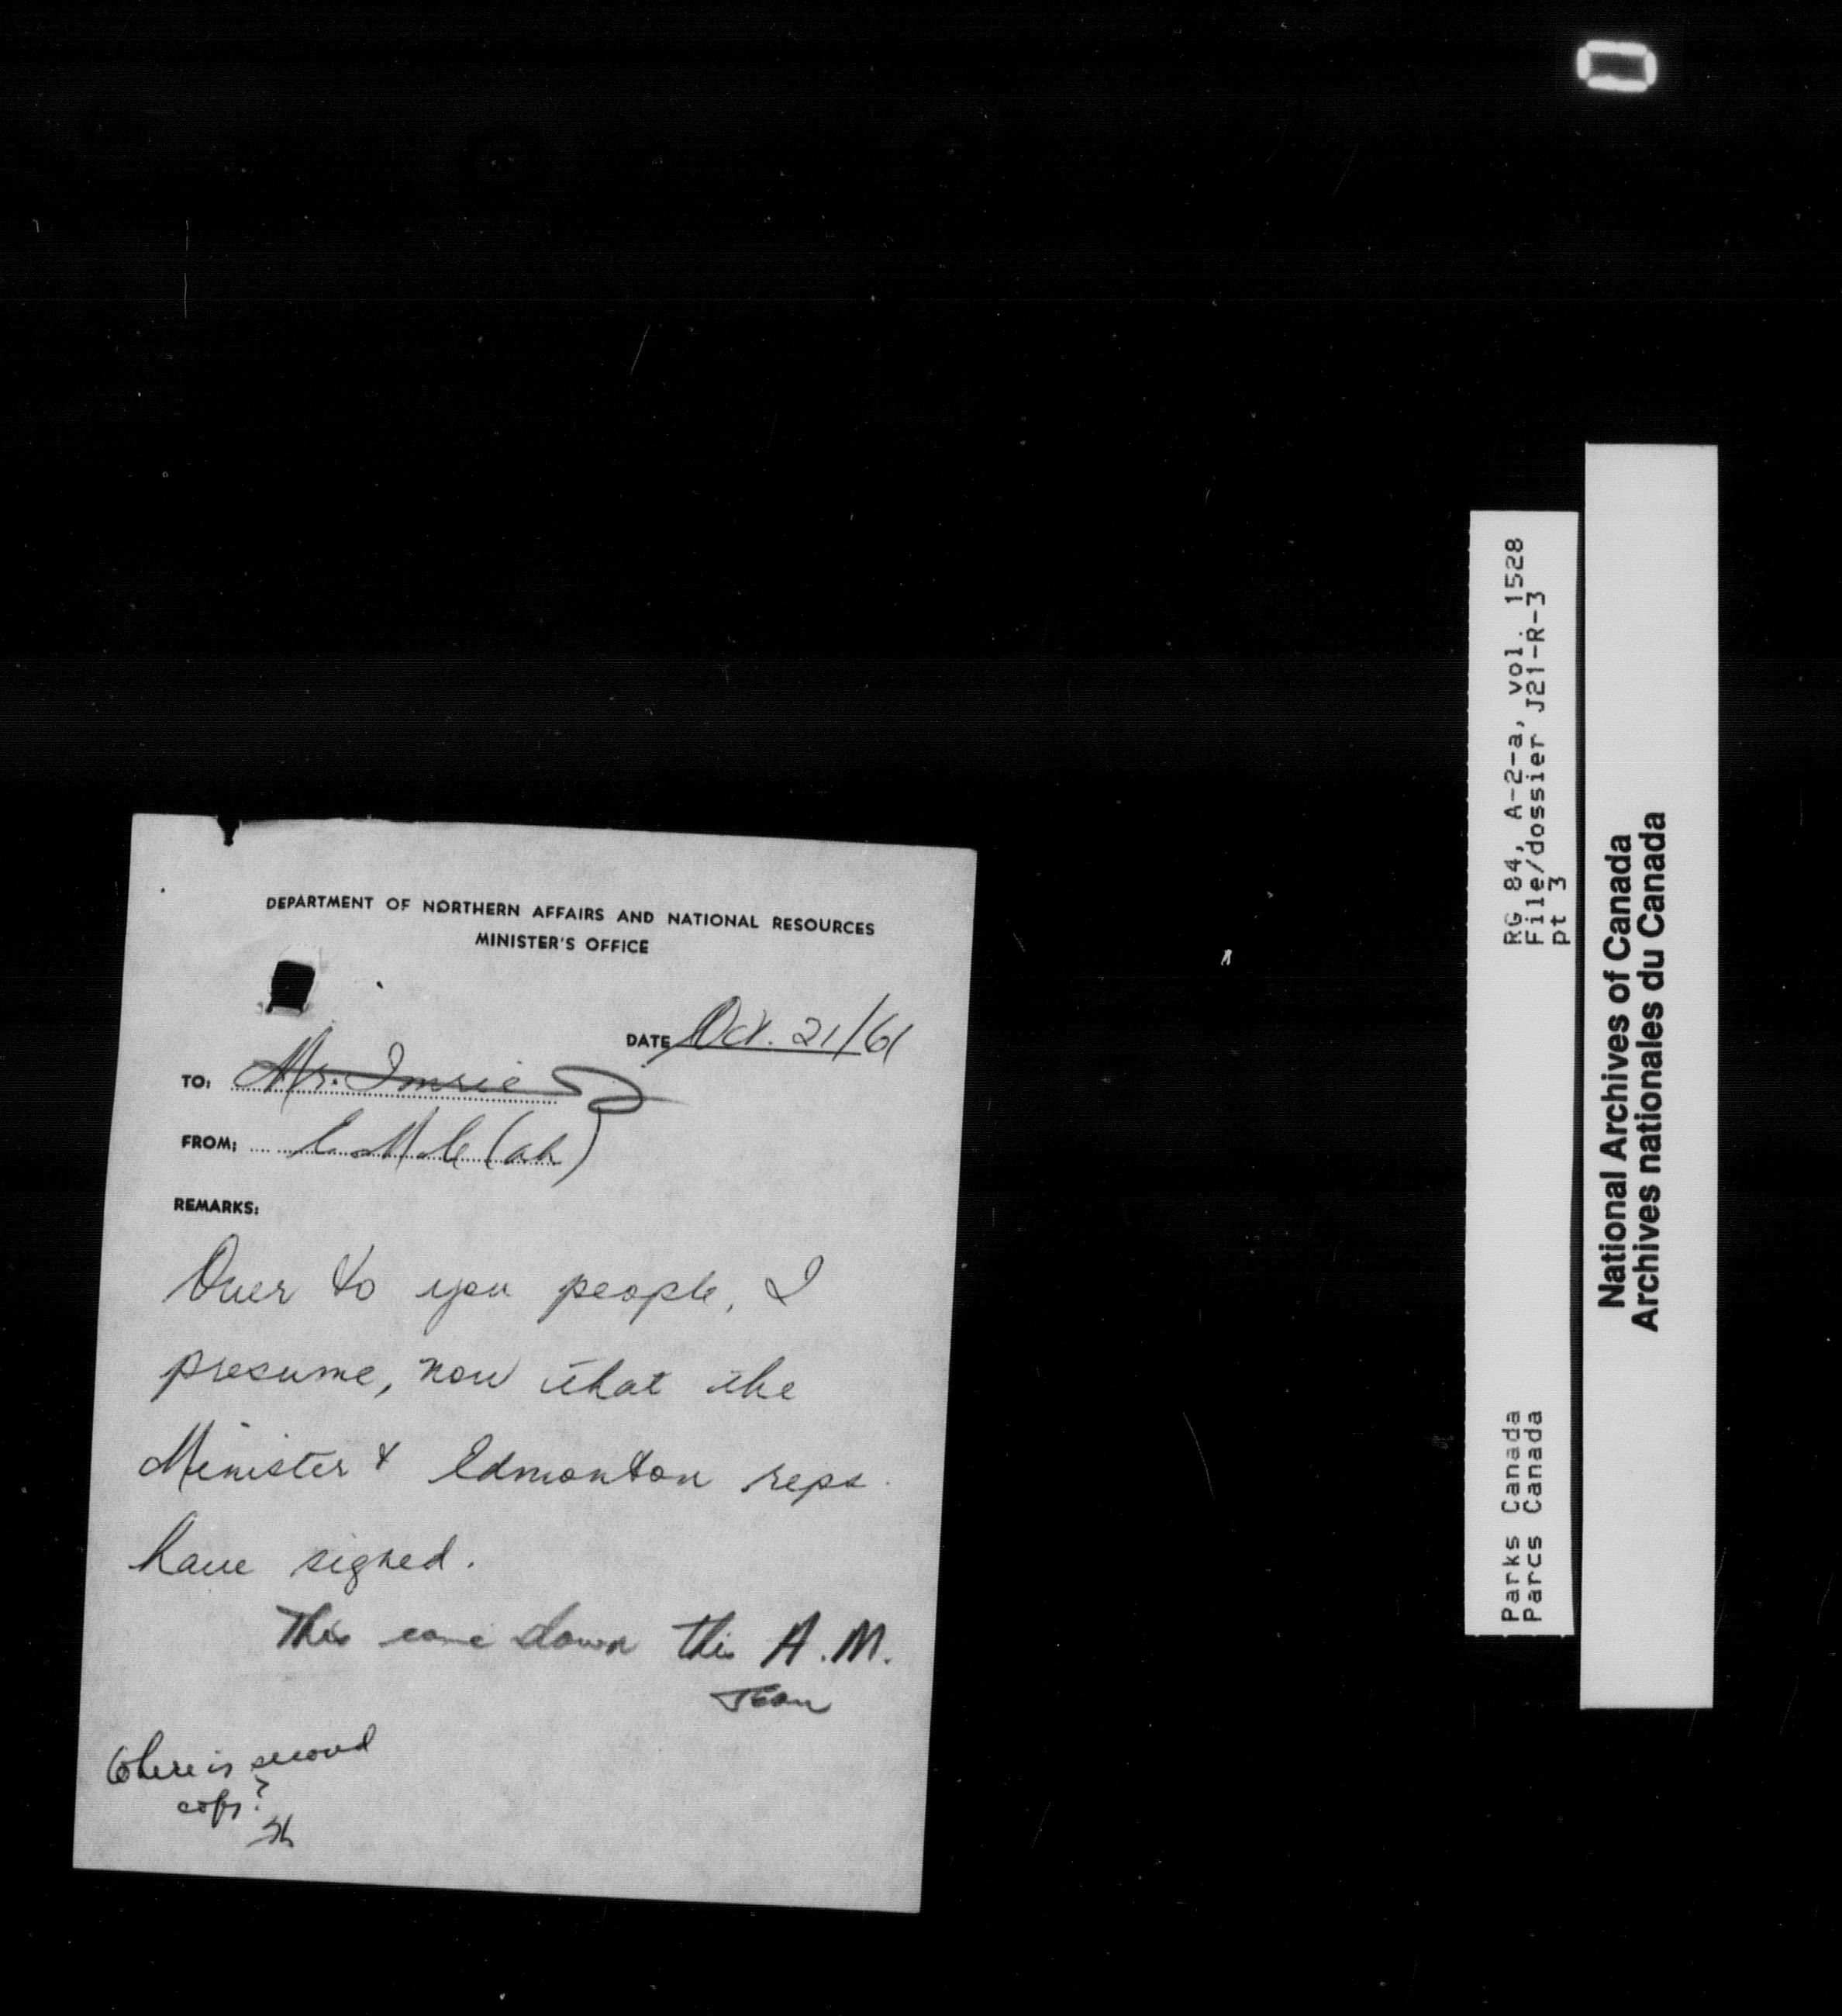 DEPARTMENT OF NORTHERN AFFAIRS AND NATIONAL RESOURCES
MINISTER'S OFFICE
DATE Oct. 21/61
TO: Mr. Imrie
FROM:
REMARKS:
Over to you people, I
presume, now that the
Minister & Edmonton reps.
have signed.
This came down this A.M.
Jean
Where is second
copy?
RG 84, A-2-a, vol. 1528
File/dossier J21-R-3
pt 3
Parks Canada
Parcs Canada
National Archives of Canada
Archives nationales du Canada